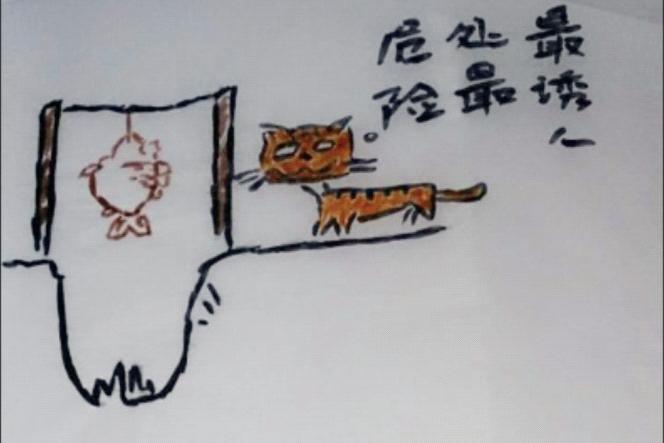 最诱人
处最
危险